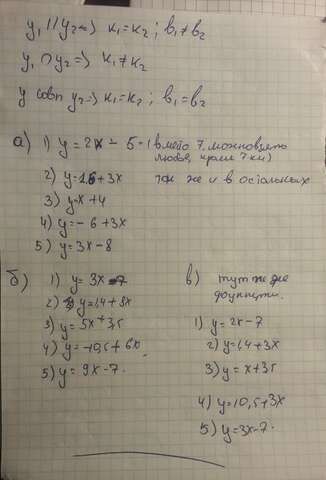 y₁ || y₂ => k₁=k₂; b₁≠b₂
y₁ ∩ y₂ => k₁≠k₂
y совп y₂ -> k₁=k₂; b₁=b₂
а) 1) y = 2x - 5 (вместо 7 можно взять
любое, кроме 7-ки)
2) y=1,6+3x так же и в остальных
3) y=x+4
4) y=-6+3x
5) y=3x-8
б) 1) y=3x-7
2) y=1,4+8x
3) y=5x+3,5
4) y=-10,5+6x
5) y=9x-7.
в) тут те же
функции.
1) y=2x-7
2) y=1,4+3x
3) y=x+3,5
4) y=10,5+3x
5) y=3x-7.